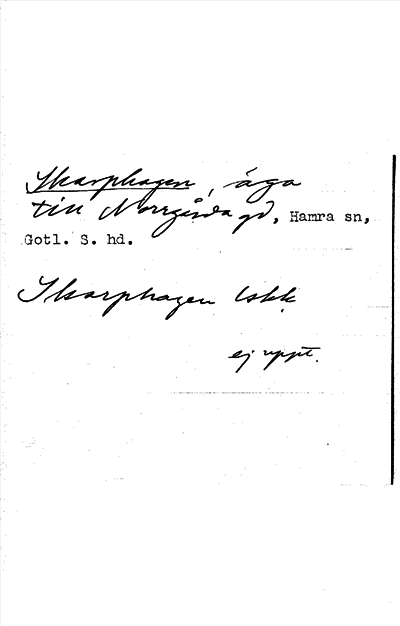 Skarphagen, äga
till Norrgårda gd, Hamra sn,
Gotl. S. hd.
Skarphagen lskk
ej uppt.